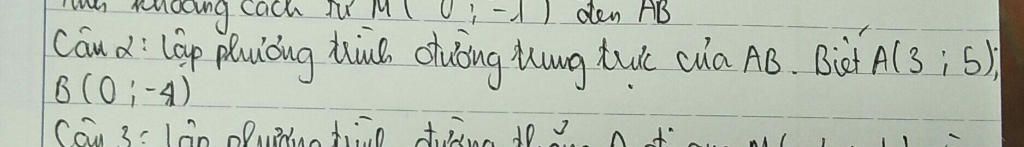 khoảng cách từ M ( 0 ; -1 ) đến AB
Câu 2: lập phương trình đường trung trực của AB. Biết A(3 ; 5);
B (0 ; -4)
Câu 3: lập phương trình đường